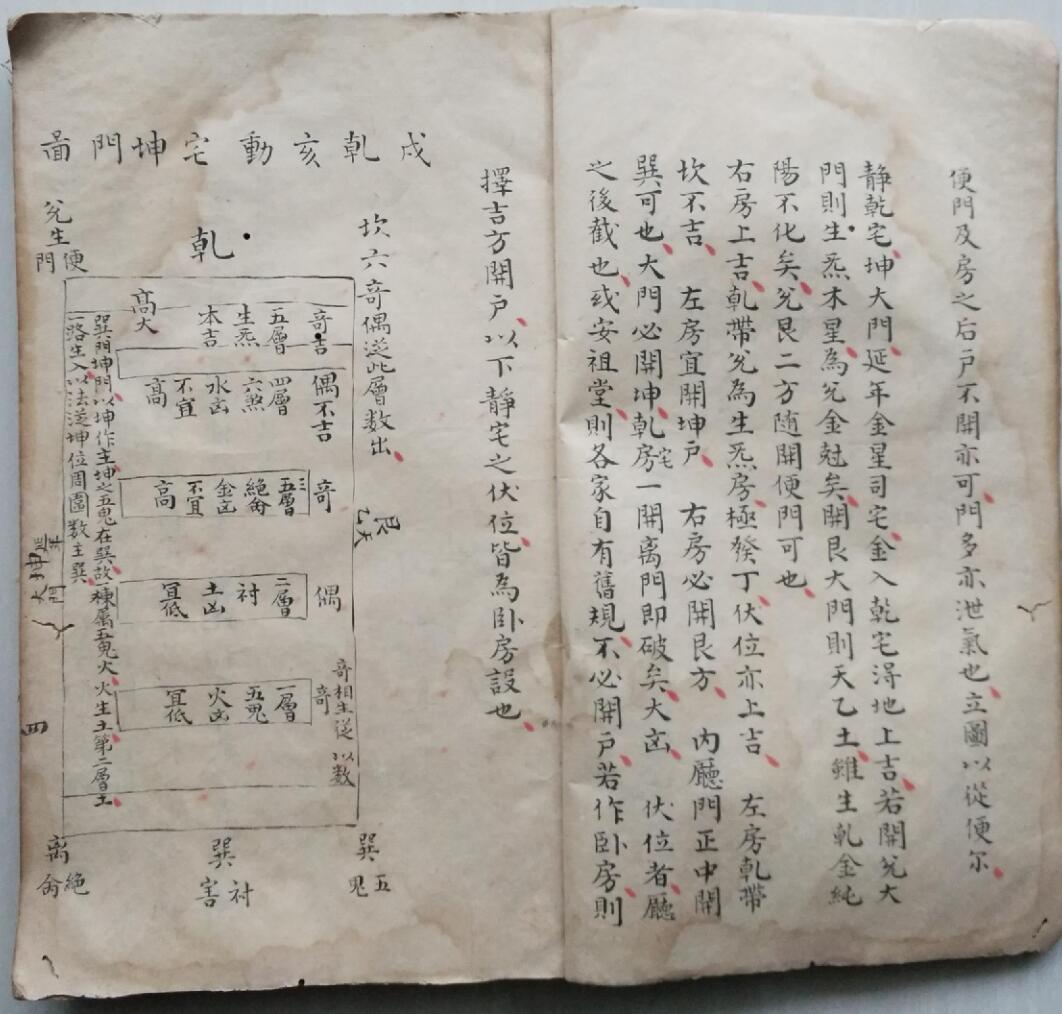 便門及房之后户不開亦可門多亦泄氣也立圖以從便尔
静乾宅坤大門延年金星司宅金入乾宅淂地上吉若開兊大
門則生炁木星為兊金尅矣開艮大門則天乙土雖生乹金純
陽不化矣兊艮二方随開便門可也
右房上吉乹帶兊為生炁房極癸丁伏位亦上吉 左房乹帶
坎不吉 左房宜開坤户 右房必開艮方 内廳門正中開
巽可也大門必開坤乹宅房一開离門即破矣大凶 伏位者廳
之後截也或安祖堂則各家自有舊規不必開户若作卧房則
擇吉方開户以下静宅之伏位皆為卧房設也
戍乹亥動宅坤門啚
坎六奇偶逆此層数出
艮天乙
乹
兊生
便門
高大
奇吉
五層
生炁
本吉
偶不吉
四層
六煞
水凶
不宜
高
奇
三層
絶命
金凶
不宜
高
偶
二層
衬
土凶
宜低
奇相生從以数
奇
一層
五鬼
火凶
宜低
巽門坤門以坤作主坤之五鬼在巽故一棟属五鬼火火生土第二層土
一路生入以法逆坤位周圍数主巽
坤
大門
延年
四
巽五鬼
巽
衬害
离絶命